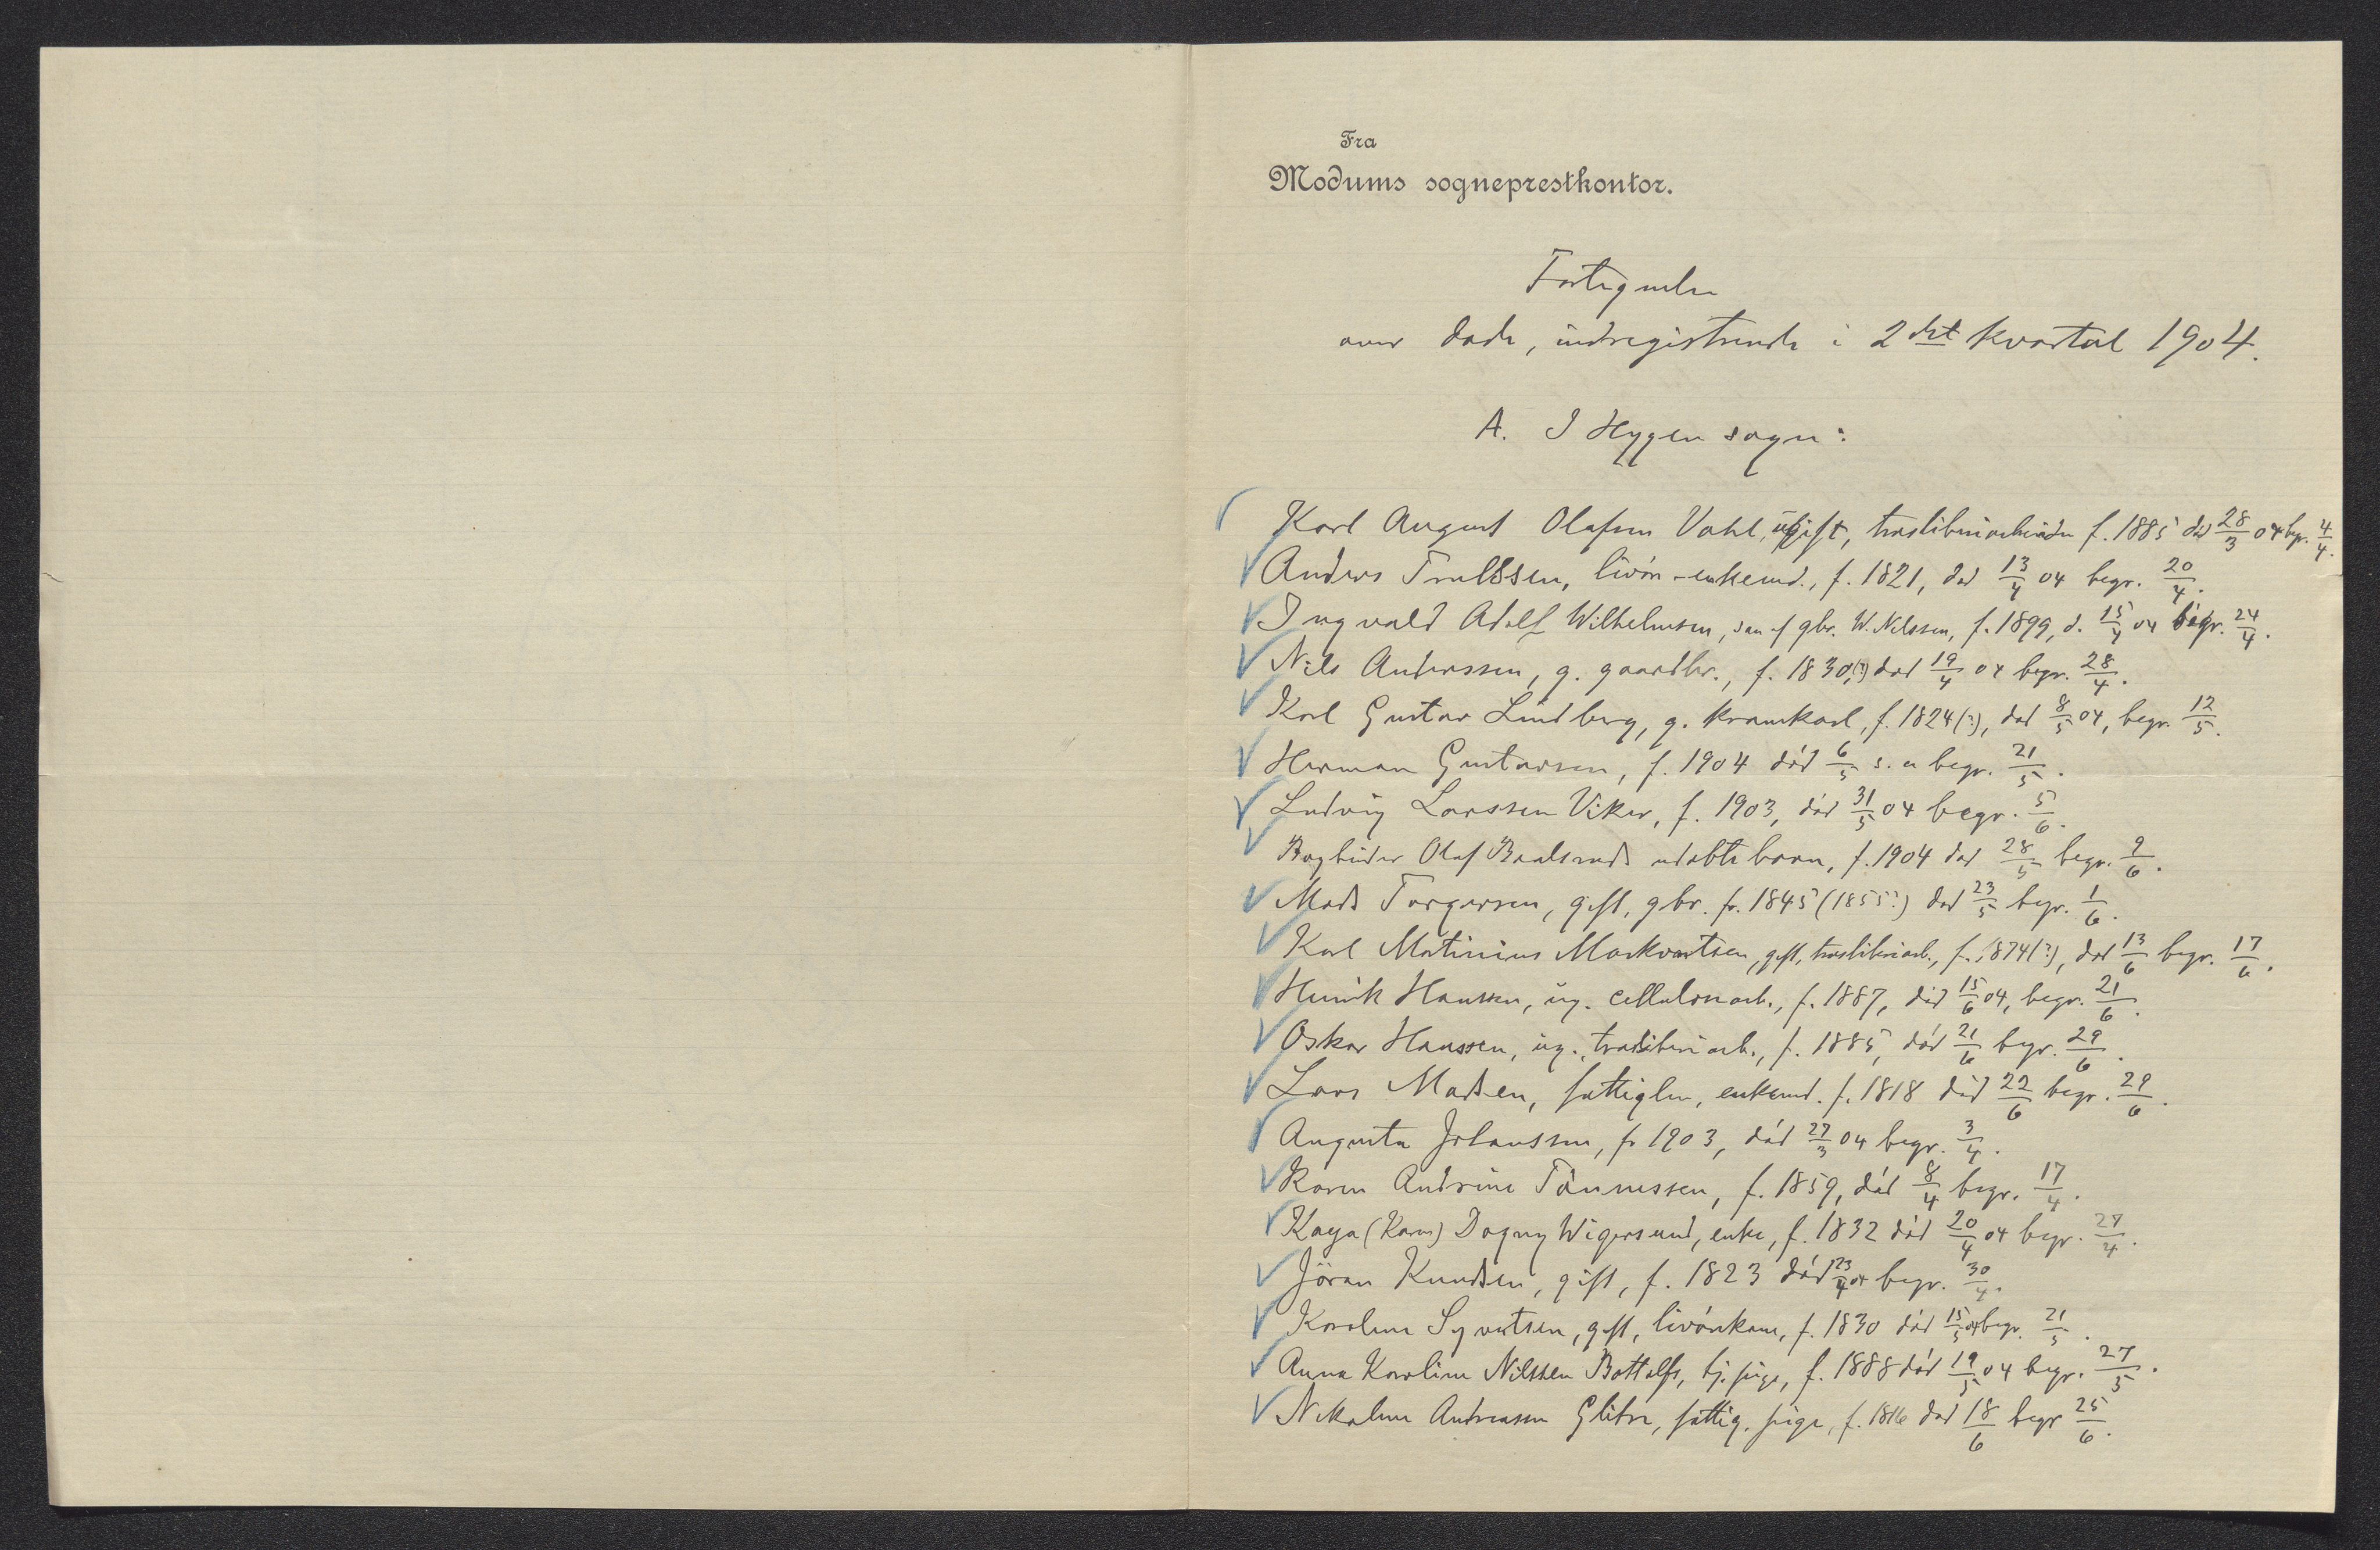 Fra
Modums sogneprestkontor.
Fortegnelse
over døde, indregistrerede i 2det kvartal 1904.
A. I Heggen sogn:
Karl August Olafsen Vahl, ugift, træsliberiarbeider f. 1885 død 28/3 04 begr. 4/4.
Anders Trulssen, livør-enkemd., f. 1821, død 13/4 04 begr. 20/4.
Ingvald Adolf Wilhelmsen, søn af gbr. W. Nilssen, f. 1899, d. 15/4 04 begr. 24/4.
Nils Anderssen, g. gaardbr., f. 1830(?) død 19/4 04 begr. 28/4.
Karl Gustav Lindberg, g. kramkarl, f. 1824(?), død 8/5 04, begr. 12/5.
Herman Gustavsen, f. 1904 død 6/5 s. a begr. 21/5.
Ludvig Larssen Viker, f. 1903, død 31/5 04 begr. 5/6.
Bogbinder Olaf Braatsruds udøbte barn, f. 1904 død 28/5 begr. 9/6.
Mads Torgersen, gift, gbr. f. 1845 (1855?) død 23/5 begr. 1/6.
Karl Martinius Markvartsen, gift, træsliberiarb., f. 1874(?), død 13/6 begr. 17/6.
Henrik Hanssen, ug. cellulosearb., f. 1887, død 15/6 04, begr. 21/6.
Oskar Hanssen, ug., træsliberiarb., f. 1885, død 21/6 begr. 29/6.
Lars Madsen, fattiglem, enkemd. f. 1818 død 22/6 begr. 29/6.
Augusta Johanssen, f. 1903, død 27/3 04 begr. 3/4.
Karen Andrine Tønnessen, f. 1859, død 8/4 begr. 17/4.
Kaya (Karen) Dagny Wigersund, enke, f. 1832 død 20/4 04 begr. 27/4.
Jøran Knudsen, gift, f. 1823 død 23/4 04 begr. 30/4.
Karoline Syvertsen, gift, livørkone, f. 1830 død 15/5 04 begr. 21/5.
Anna Karoline Nilssen Bottolfs, tj. pige, f. 1888 død 19/5 04 begr. 27/5.
Nikoline Andreassen Glitre, fattig. pige, f. 1816 død 18/6 begr 25/6.